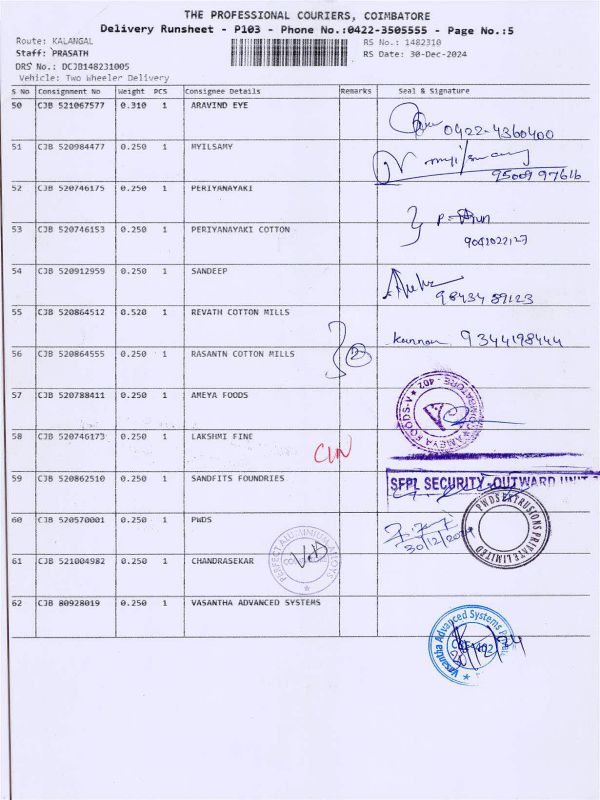 THE PROFESSIONAL COURIERS, COIMBATORE
Delivery Runsheet - P103 - Phone No.:0422-3505555 - Page No.:5
Route: KALANGAL RS No.: 1482310
Staff: PRASATH RS Date: 30-Dec-2024
DRS No.: DCJB148231005
Vehicle: Two Wheeler Delivery
S No Consignment No Weight PCS Consignee Details Remarks Seal & Signature
50 CJB 521067577 0.310 1 ARAVIND EYE
0422-4360400
51 CJB 520984477 0.250 1 MYILSAMY
95009 97616
52 CJB 520746175 0.250 1 PERIYANAYAKI
53 CJB 520746153 0.250 1 PERIYANAYAKI COTTON
9041022127
54 CJB 520912959 0.250 1 SANDEEP
98434 89123
55 CJB 520864512 0.520 1 REVATH COTTON MILLS
kannan 9344198444
56 CJB 520864555 0.250 1 RASANTN COTTON MILLS 2
57 CJB 520788411 0.250 1 AMEYA FOODS
AMEYA FOODS
58 CJB 520746173 0.250 1 LAKSHMI FINE
59 CJB 520862510 0.250 1 SANDFITS FOUNDRIES
SFPL SECURITY-OUTWARD UNIT
60 CJB 520570001 0.250 1 PWDS
PWDS EXTRUSIONS PRIVATE LIMITED
30/12/2024
61 CJB 521004982 0.250 1 CHANDRASEKAR
PERFECT ALUMINIUM ALLOYS
62 CJB 80928019 0.250 1 VASANTHA ADVANCED SYSTEMS
Vasantha Advanced Systems